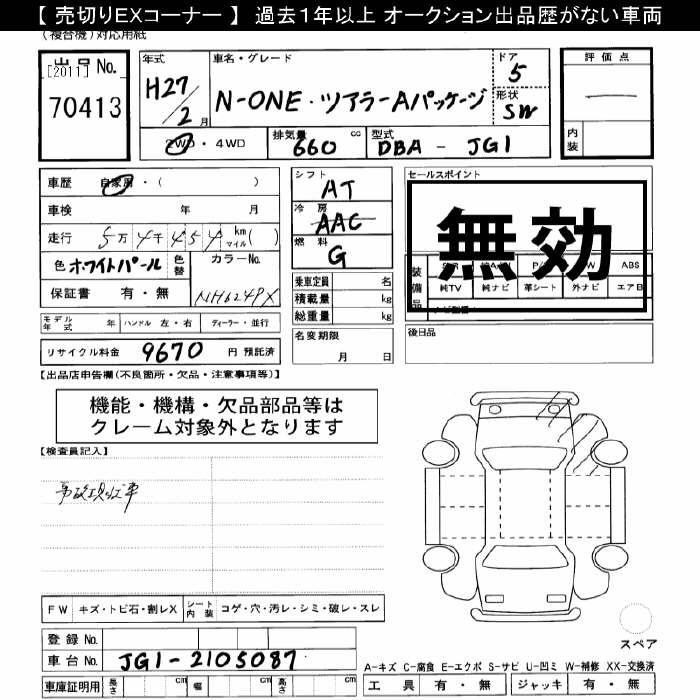 【 売切りEXコーナー 】 過去1年以上 オークション出品歴がない車両
(複合機)対応用紙
出品 No.
[2011]
70413
年式
H27/2月
車名・グレード
N-ONE・ツアラーAパッケージ
ドア
5
形状
SW
2WD・4WD
排気量
660 cc
型式
DBA - JG1
評価点
―
内装
車歴 自家用・( )
車検 年 月
走行 5万4千454 km マイル( )
色 ホワイトパール 色替
カラーNo.
NH624PX
保証書 有・無
シフト
AT
冷房
AAC
燃料
G
乗車定員 名
積載量 kg
総重量 kg
セールスポイント
無効
装備品
ABS
純TV 純ナビ 革シート 外ナビ エアB
モデル年式 年 ハンドル 左・右 ディーラー・並行
リサイクル料金 9670 円 預託済
名変期限
月 日
後日品
【出品店申告欄(不良箇所・欠品・注意事項等)】
機能・機構・欠品部品等は
クレーム対象外となります
【検査員記入】
事故現状車
FW キズ・トビ石・割レX シート内装 コゲ・穴・汚レ・シミ・破レ・スレ
登録 No.
車台 No. JG1-2105087
車庫証明用 長さ cm 幅 cm 高さ cm
スペア
A-キズ C-腐食 E-エクボ S-サビ U-凹ミ W-補修 XX-交換済
工具 有・無 ジャッキ 有・無